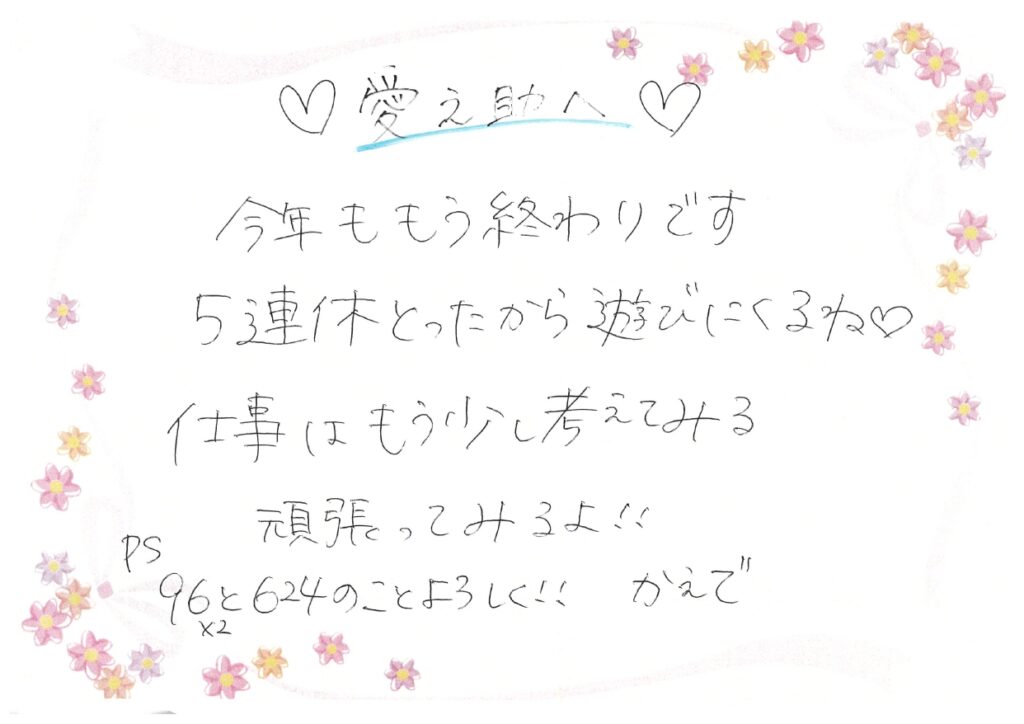 ♡愛之助へ♡
今年ももう終わりです
5連休とったから遊びにくるね♡
仕事はもう少し考えてみる
頑張ってみるよ!!
PS
96と624のことよろしく!! かえで
x2